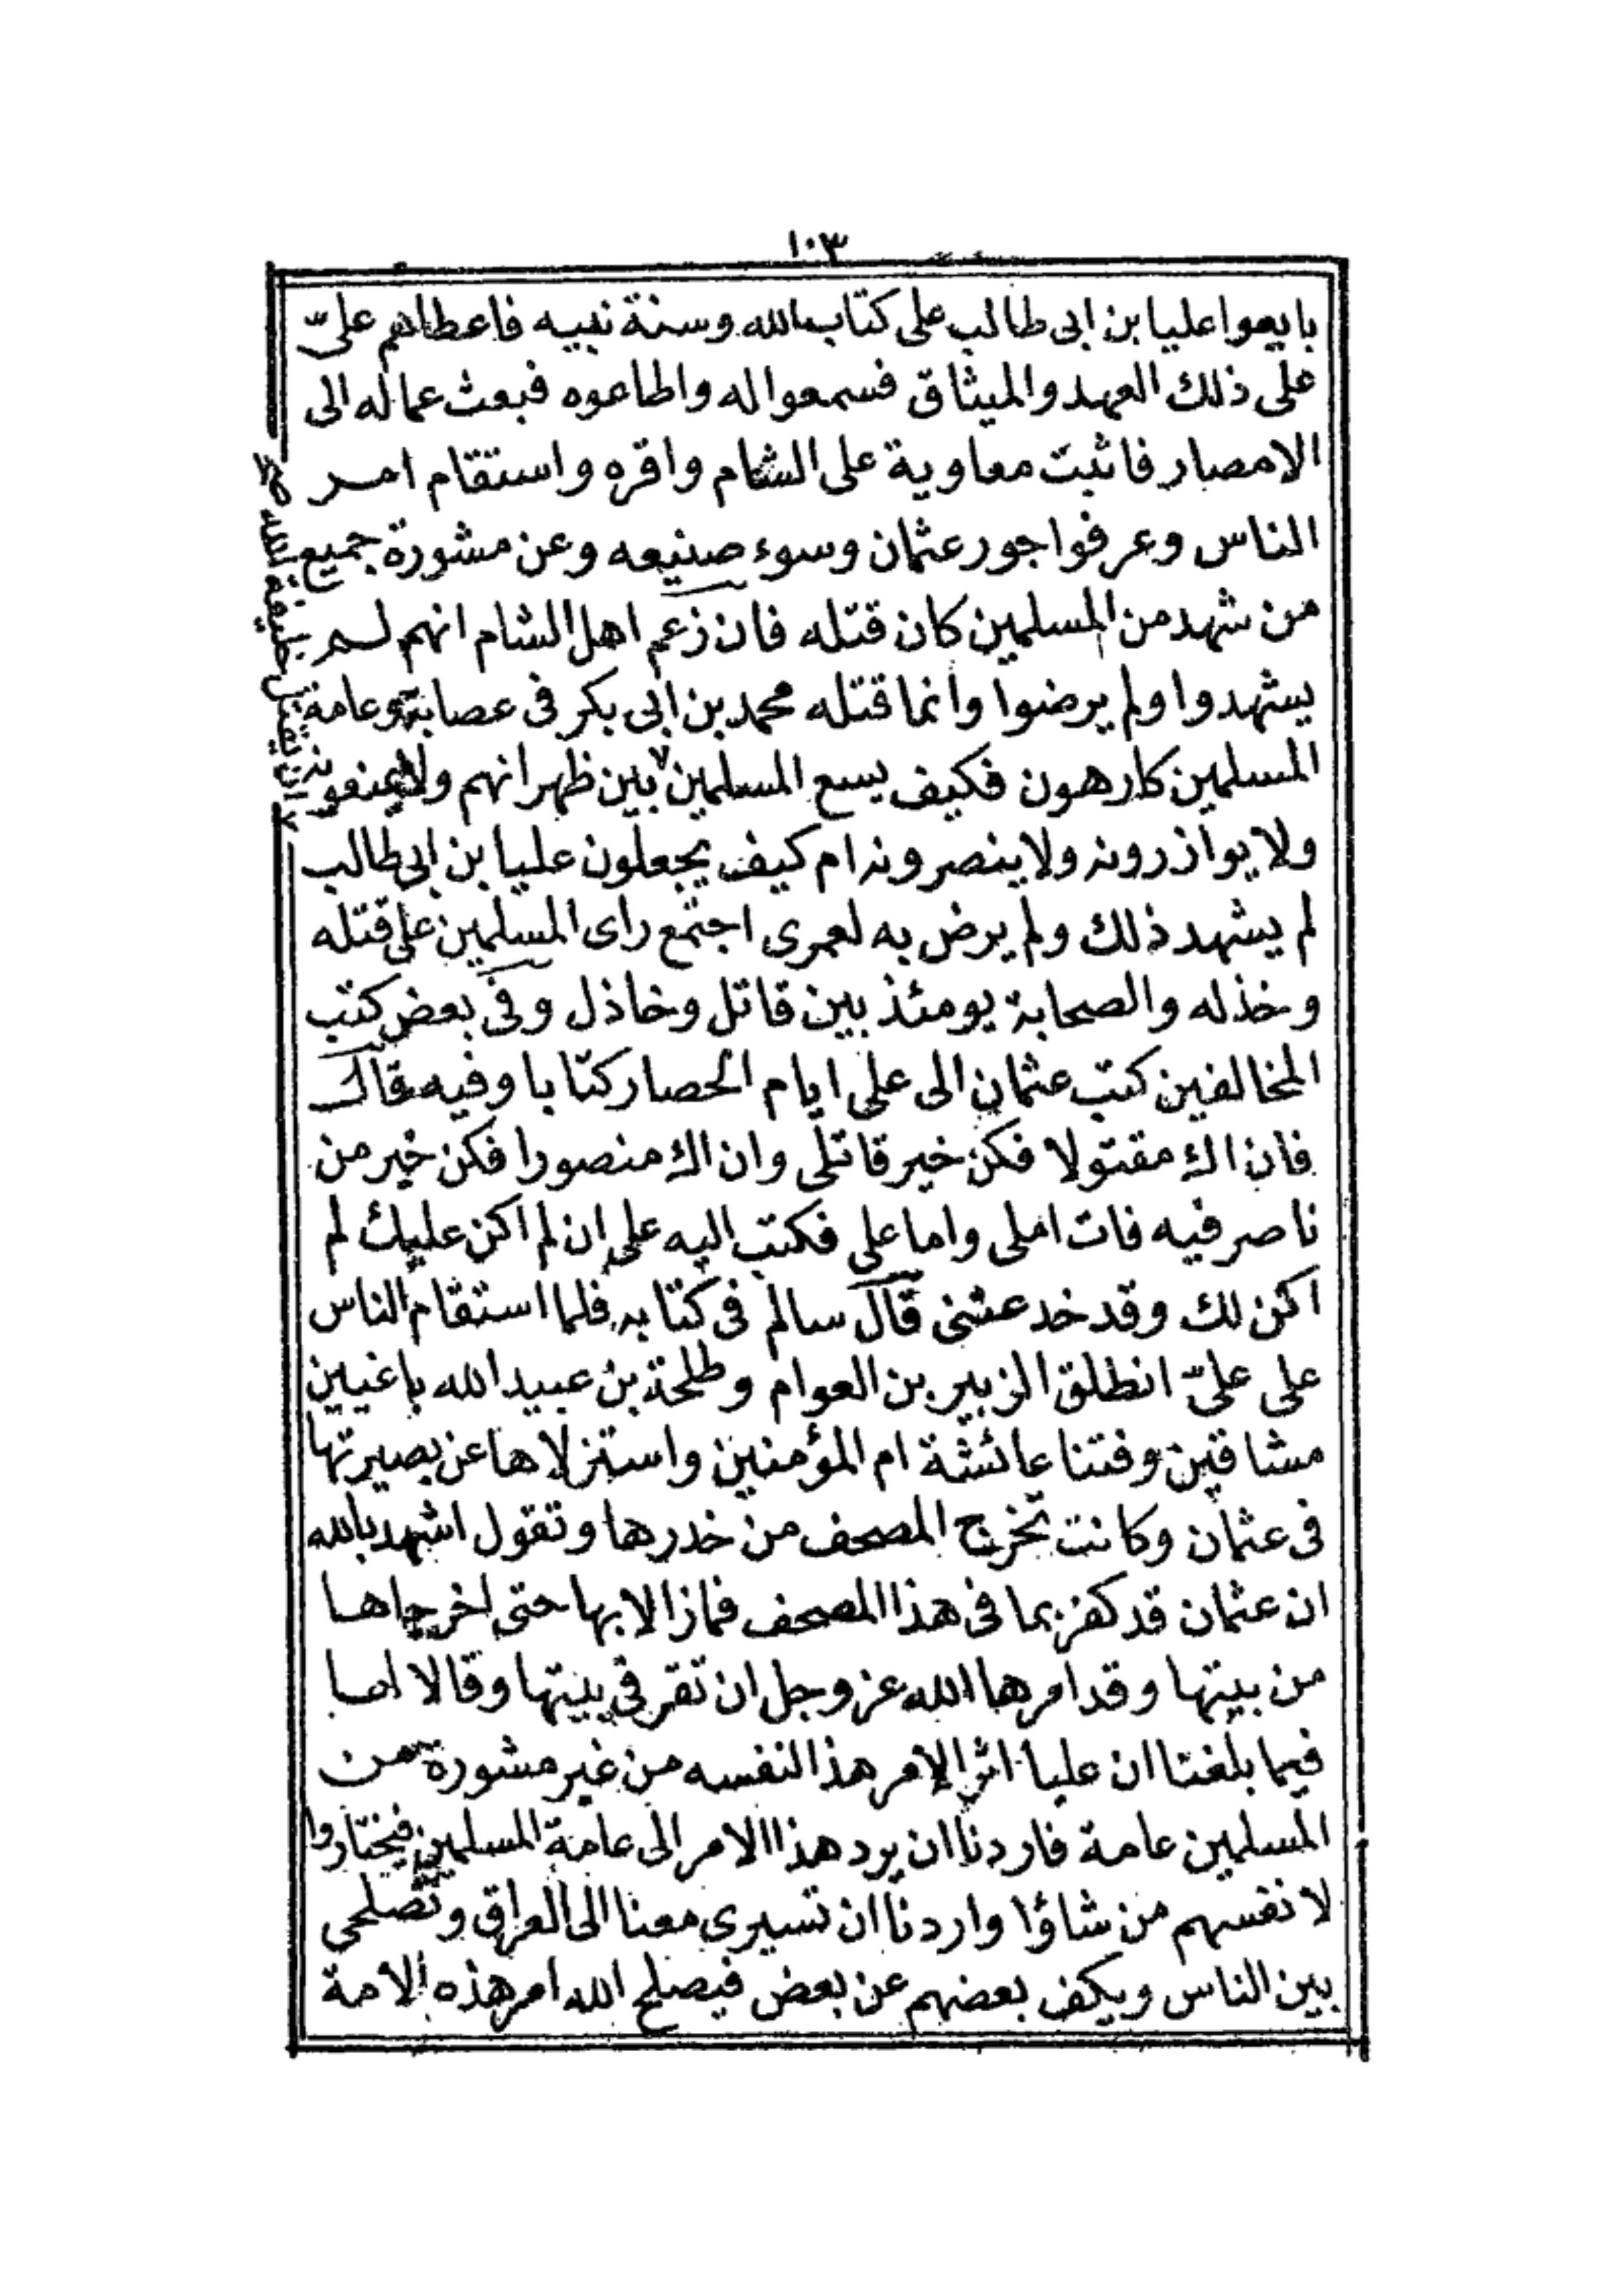 ١٠٣
بايعوا عليا بن ابى طالب على كتاب الله وسنة نبيه فاعطاهم علىّ
على ذلك العهد والميثاق فسمعوا له واطاعوه فبعث عماله الى
الامصار فاثبت معاوية على الشام واقره واستقام امر
الناس وعرفوا جور عثمان وسوء صنيعه وعن مشورة جميع
من شهد من المسلمين كان قتله فان زعم اهل الشام انهم لم
يشهدوا ولم يرضوا وانما قتله محمد بن ابى بكر فى عصابة وعامة
المسلمين كارهون فكيف يسع المسلمين بين ظهرانهم ولا يمنعونه
ان يقتل خليفة
ولا يوازرونه ولا ينصرونه ام كيف يجعلون عليا بن ابى طالب
لم يشهد ذلك ولم يرض به لعمرى اجتمع راى المسلمين على قتله
وخذله والصحابة يومئذ بين قاتل وخاذل وفى بعض كتب
المخالفين كتب عثمان الى على ايام الحصار كتابا وفيه قال
فان اك مقتولا فكن خير قاتلى وان اك منصورا فكن خير من
ناصر فيه فات املى واما على فكتب اليه على ان لم اكن عليك لم
اكن لك وقد خدعتنى قال سالم فى كتابه فلما استقام الناس
على علىّ انطلق الزبير بن العوام وطلحة بن عبيد الله باغيين
مشاقين وفتنا عائشة ام المؤمنين واستزلاها عن بصيرتها
فى عثمان وكانت تخرج المصحف من خدرها وتقول اشهد بالله
ان عثمان قد كفر بما فى هذا المصحف فمازالا بها حتى اخرجاها
من بيتها وقد امرها الله عز وجل ان تقر فى بيتها وقالا لها
فيما بلغنا ان عليا اثر الامر هذا لنفسه من غير مشورة من
المسلمين عامة فاردنا ان يرد هذا الامر الى عامة المسلمين فيختاروا
لانفسهم من شاؤا واردنا ان تسيرى معنا الى العراق وتصلحى
بين الناس ويكف بعضهم عن بعض فيصلح الله امر هذه الامة